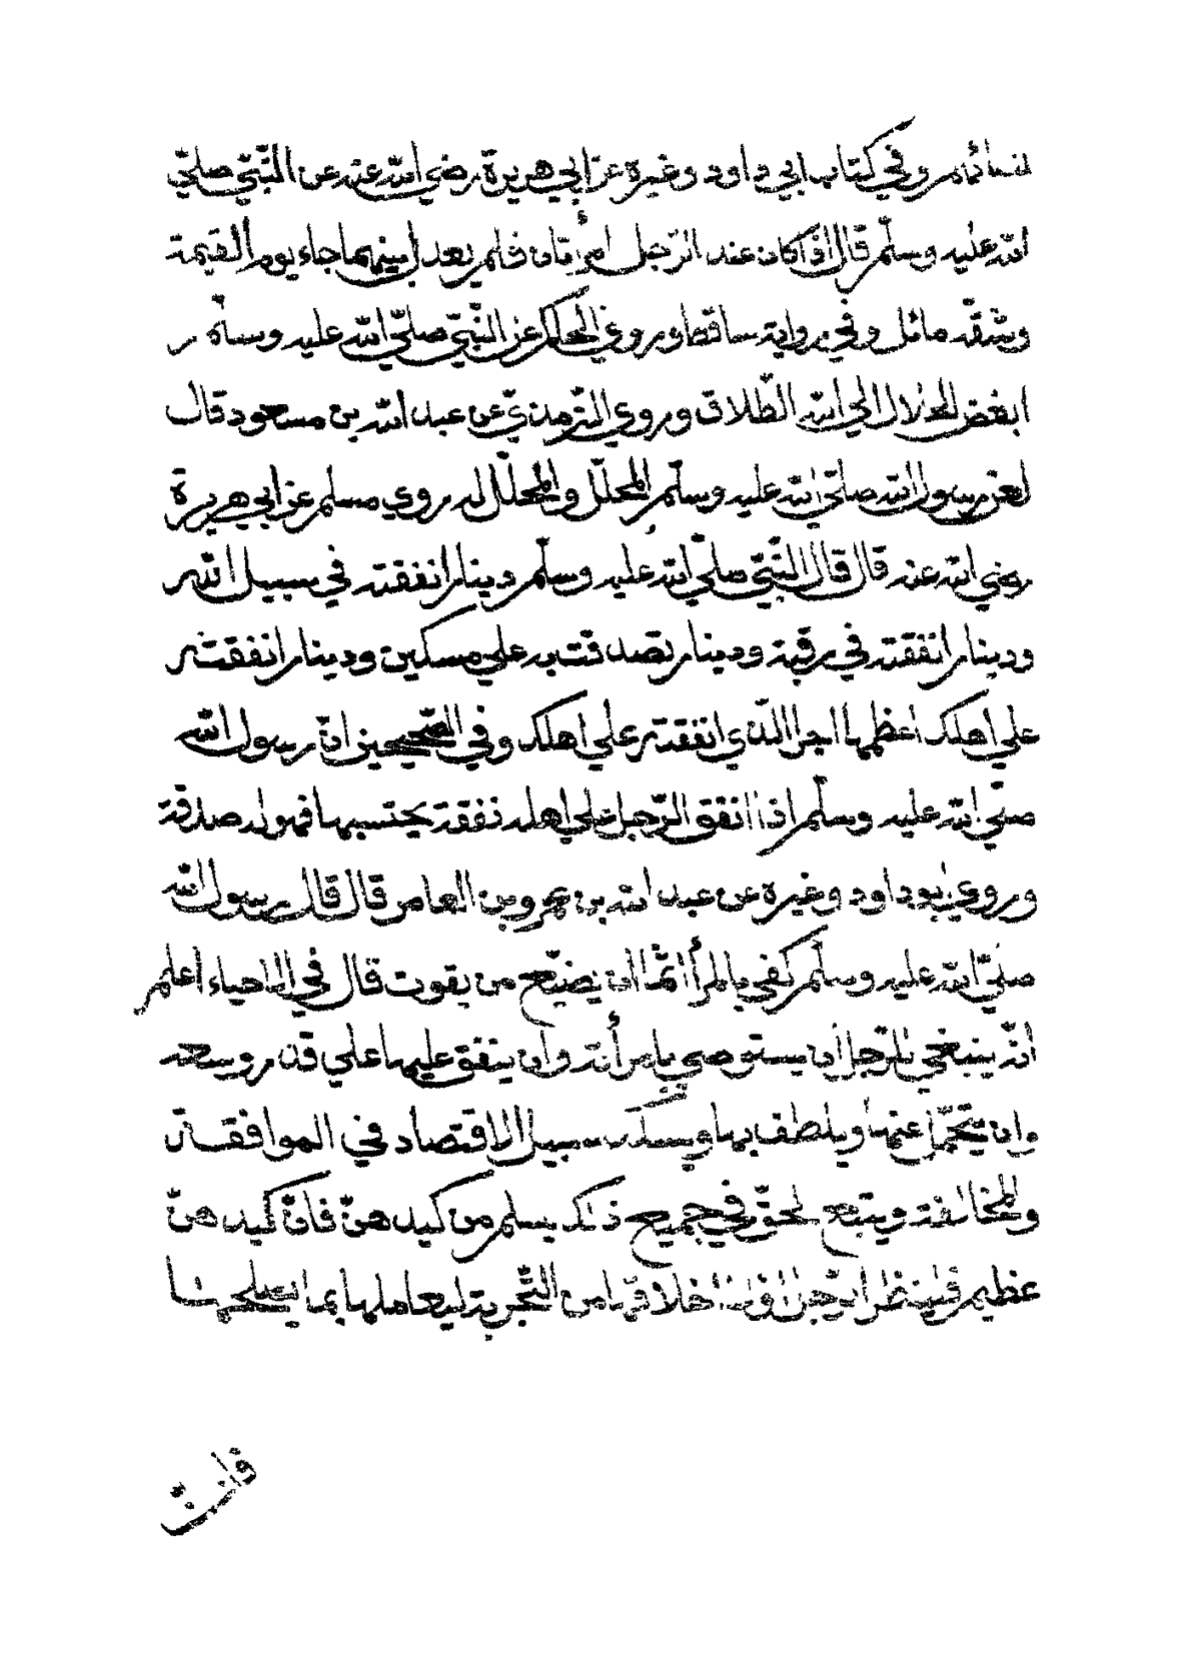 لنسائهم وفي كتاب ابي داود وغيره عن ابي هريرة رضي الله عنه عن النّبيّ صلّي
الله عليه وسلّم قال اذا كان عند الرّجل امرأتان فلم يعدل بينهما جاء يوم القيمة
وشقّه مائل وفي رواية ساقط وروي الحاكم عن النّبيّ صلّي الله عليه وسلّم
ابغض الحلال الي الله الطّلاق وروي التّرمذيّ عن عبد الله بن مسعود قال
لعن رسول الله صلّي الله عليه وسلّم المحلّل والمحلّل له روي مسلم عن ابي هريرة
رضي الله عنه قال قال النّبيّ صلّي الله عليه وسلّم دينار انفقته في سبيل الله
ودينار انفقته في رقبة ودينار تصدقت به علي مسكين ودينار انفقته
علي اهلك اعظمها اجرا الّذي انفقته علي اهلك وفي الصّحيحين انّ رسول الله
صلّي الله عليه وسلّم اذا انفق الرّجل علي اهله نفقة يحتسبها فهو له صدقة
وروي ابو داود وغيره عن عبد الله بن عمرو بن العاص قال قال رسول الله
صلّي الله عليه وسلّم كفي بالمرأ اثما ان يضيّع من يقوت قال في الاحياء اعلم
انّه ينبغي للرّجل ان يستوصي بامرأته وان ينفق عليها علي قدر وسعه
وان يتحمّل عنها ويلطف بها ويسلك سبيل الاقتصاد في الموافقة
والمخالفة ويتبع الحقّ في جميع ذلك يسلم من كيدهنّ فانّ كيدهنّ
عظيم فلينظر الرّجل اخلاقها من التّجربة ليعاملها بما يصلحها
فانّ